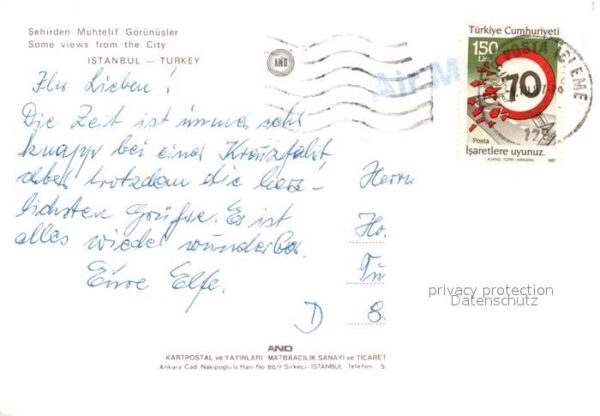 Şehirden Muhtelif Görünüşler
Some views from the City
İSTANBUL – TURKEY
AND
Air M
Türkiye Cumhuriyeti
150
Lira
70
Posta
İşaretlere uyunuz.
AJANS-TÜRK - ANKARA 1987
Ihr Lieben!
Die Zeit ist immer sehr
knapp bei einer Kreuzfahrt,
daher trotzdem die herz-
lichsten Grüße. Es ist
alles wieder wunderbar.
Eure Elfe.
Herrn
Ho.
Tü
D 8.
privacy protection
Datenschutz
AND
KARTPOSTAL ve YAYINLARI MATBAACILIK SANAYİ ve TİCARET
Ankara Cad. Nakipoğlu İş Hanı No 80/7 Sirkeci - İSTANBUL Telefon 5